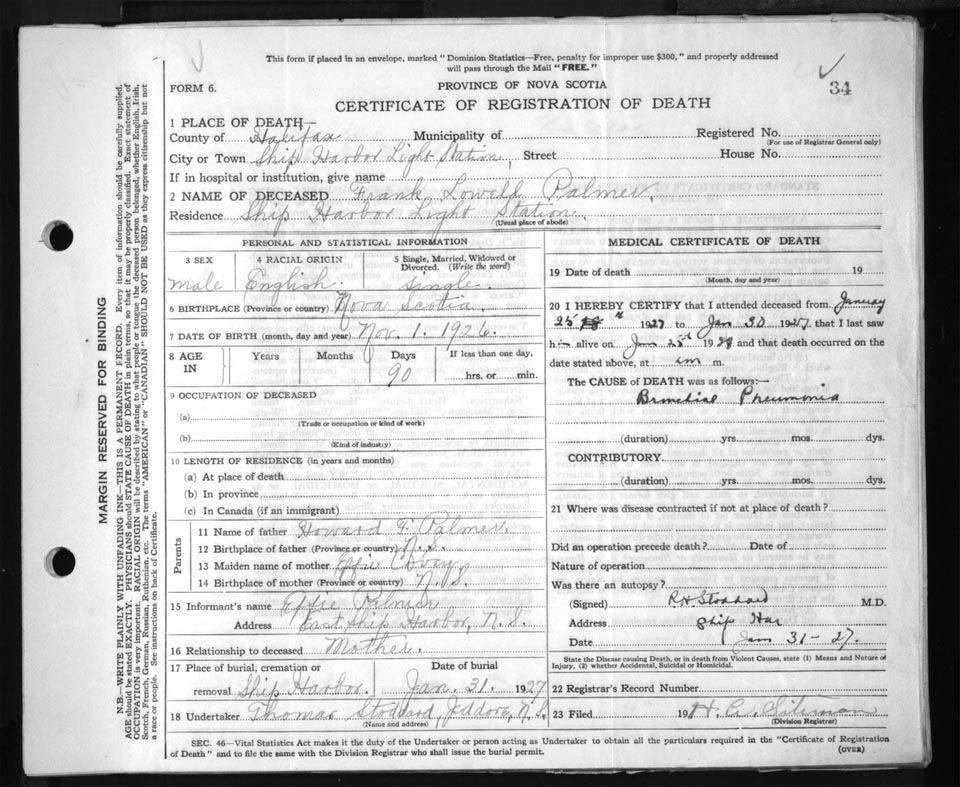 This form if placed in an envelope, marked "Dominion Statistics—Free, penalty for improper use $300," and properly addressed
will pass through the Mail "FREE."
FORM 6.
PROVINCE OF NOVA SCOTIA
34
CERTIFICATE OF REGISTRATION OF DEATH
1 PLACE OF DEATH—
County of Halifax Municipality of Registered No.
(For use of Registrar General only)
City or Town Ship Harbor Light Station, Street House No.
If in hospital or institution, give name
2 NAME OF DECEASED Frank Lowell Palmer.
Residence Ship Harbor Light Station.
(Usual place of abode)
PERSONAL AND STATISTICAL INFORMATION
3 SEX 4 RACIAL ORIGIN 5 Single, Married, Widowed or
Divorced. (Write the word)
male English. single.
6 BIRTHPLACE (Province or country) Nova Scotia.
7 DATE OF BIRTH (month, day and year) Nov. 1. 1926.
8 AGE IN Years Months Days If less than one day,
90 hrs. or min.
9 OCCUPATION OF DECEASED
(a)
(Trade or occupation or kind of work)
(b)
(Kind of industry)
10 LENGTH OF RESIDENCE (in years and months)
(a) At place of death
(b) In province
(c) In Canada (if an immigrant)
Parents
11 Name of father Howard Palmer.
12 Birthplace of father (Province or country) N.S.
13 Maiden name of mother Effie
14 Birthplace of mother (Province or country) N.S.
15 Informant's name Effie Palmer
Address East Ship Harbor, N.S.
16 Relationship to deceased Mother.
17 Place of burial, cremation or Date of burial
removal Ship Harbor. Jan. 31. 1927
18 Undertaker Thomas Stoddard, Jeddore, N.S.
(Name and address)
MEDICAL CERTIFICATE OF DEATH
19 Date of death 19
(Month, day and year)
20 I HEREBY CERTIFY that I attended deceased from January
25 th 1927 to Jan 30 1927, that I last saw
him alive on Jan 25th 1927 and that death occurred on the
date stated above, at m.
The CAUSE of DEATH was as follows:—
Bronchial Pneumonia
(duration) yrs. mos. dys.
CONTRIBUTORY
(duration) yrs. mos. dys.
21 Where was disease contracted if not at place of death?
Did an operation precede death? Date of
Nature of operation
Was there an autopsy?
(Signed) R.H. Stoddard M.D.
Address Ship Har
Date Jan 31 - 27.
State the Disease causing Death, or in death from Violent Causes, state (1) Means and Nature of
Injury, (2) whether Accidental, Suicidal or Homicidal.
22 Registrar's Record Number
23 Filed 19
(Division Registrar)
SEC. 46—Vital Statistics Act makes it the duty of the Undertaker or person acting as Undertaker to obtain all the particulars required in the "Certificate of Registration
of Death" and to file the same with the Division Registrar who shall issue the burial permit.
(OVER)
MARGIN RESERVED FOR BINDING
N.B.—WRITE PLAINLY WITH UNFADING INK—THIS IS A PERMANENT RECORD. Every item of information should be carefully supplied.
AGE should be stated EXACTLY. PHYSICIANS should STATE CAUSE OF DEATH in plain terms, so that it may be properly classified. Exact statement of
OCCUPATION is very important. RACIAL ORIGIN will be described by stating to what people or tongue the deceased person belonged, whether English, Irish,
Scotch, French, German, Russian, Ruthenian, etc. The terms "AMERICAN" or "CANADIAN" SHOULD NOT BE USED as they express citizenship but not
a race or people. See instructions on back of Certificate.